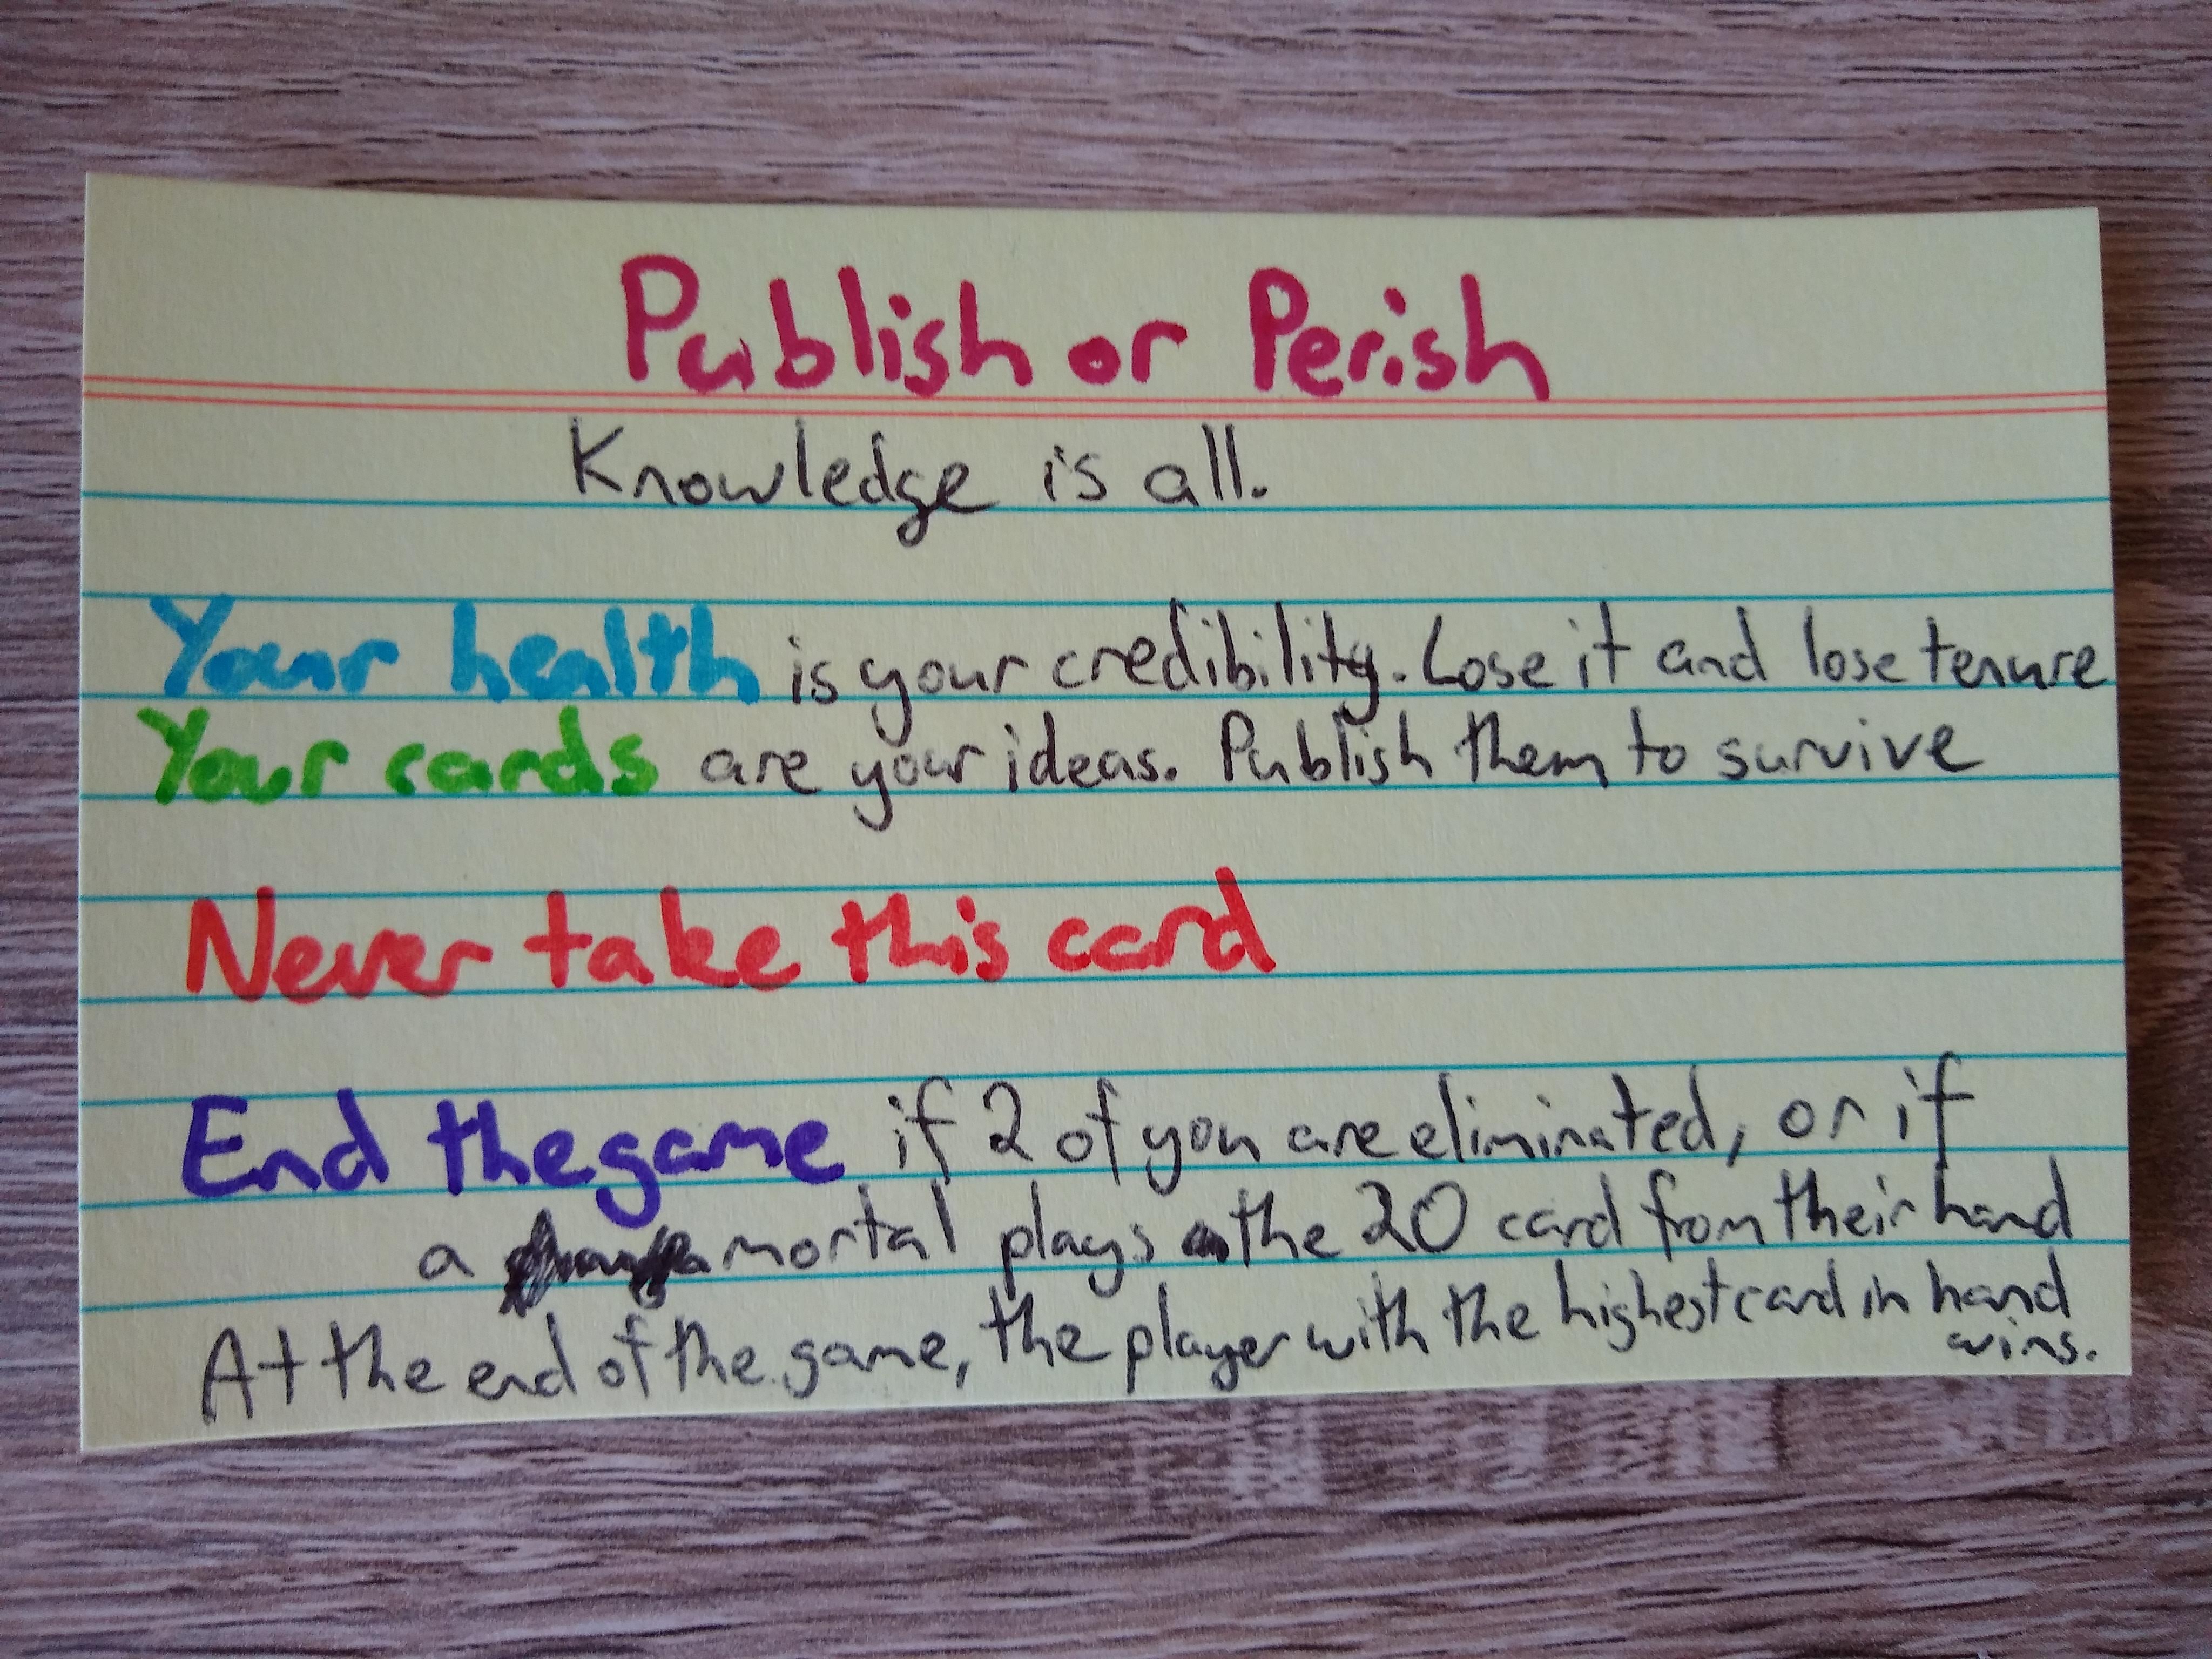 Publish or Perish
Knowledge is all.
Your health is your credibility. Lose it and lose tenure
Your cards are your ideas. Publish them to survive
Never take this card
End the game if 2 of you are eliminated, or if
a mortal plays the 20 card from their hand
At the end of the game, the player with the highest card in hand
wins.